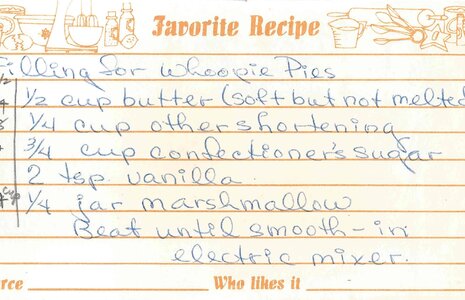 Favorite Recipe
Filling for Whoopie Pies
1/2 cup butter (soft but not melted
1/4 cup other shortening
3/4 cup confectioner's sugar
2 tsp. vanilla.
1/4 jar marshmallow
Beat until smooth - in
electric mixer.
rce Who likes it